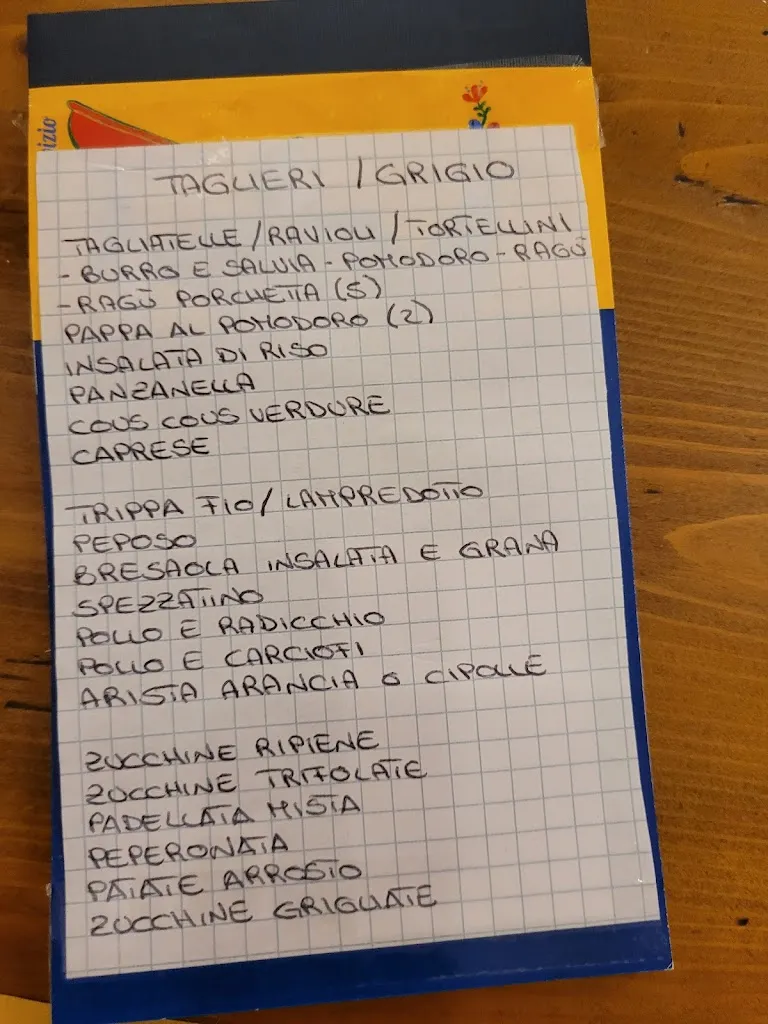 izio
TAGLIERI / GRIGIO
TAGLIATELLE / RAVIOLI / TORTELLINI
- BURRO E SALVIA - POMODORO - RAGÙ
- RAGÙ PORCHETTA (5)
PAPPA AL POMODORO (2)
INSALATA DI RISO
PANZANELLA
COUS COUS VERDURE
CAPRESE
TRIPPA FIO / LAMPREDOTTO
PEPOSO
BRESAOLA INSALATA E GRANA
SPEZZATINO
POLLO E RADICCHIO
POLLO E CARCIOFI
ARISTA ARANCIA O CIPOLLE
ZUCCHINE RIPIENE
ZUCCHINE TRIFOLATE
PADELLATA MISTA
PEPERONATA
PATATE ARROSTO
ZUCCHINE GRIGLIATE